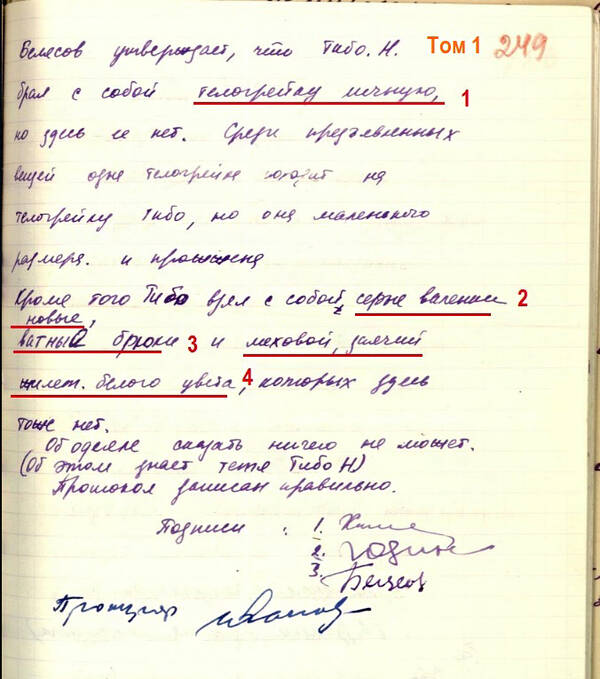 Белесов утверждает, что Тибо. Н. Том 1 249
брал с собой телогрейку личную, 1
но здесь ее нет. Среди предъявленных
вещей одна телогрейка походит на
телогрейку Тибо, но она маленького
размера. и прожжена
Кроме того Тибо взял с собой, серые валенки 2
новые,
ватные брюки 3 и меховой, заячий
жилет. белого цвета, 4 которых здесь
тоже нет.
Об одеяле сказать ничего не может.
(Об этом знает тетя Тибо Н)
Протокол записан правильно.
Подписи : 1.
2. Годин
3. Бецесов
Прокурор Иванов